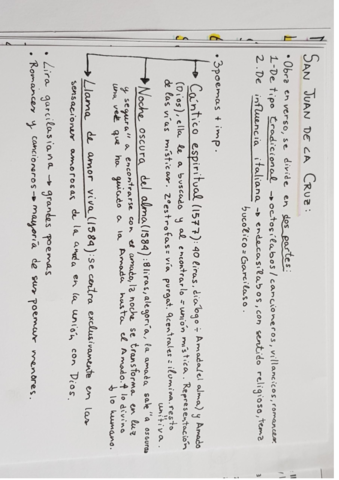 SAN JUAN DE LA CRUZ:
• Obra en verso, se divide en dos partes:
1- De tipo tradicional → octosílabos/cancioneros, villancicos, romances
2. De influencia italiana → endecasílabos, con sentido religioso, tema
bucólico = Garcilaso.
• 3 poemas + imp.
→ Cántico espiritual (1577): 40 liras, diálogo = Amada (el alma) y Amado
(Dios), ella le a buscado y al encontrarlo = unión mística. Representación
de las vías místicas. Zestrofas = vía purgat. 9 centrales = ilumina, resto
unitiva.
→ Noche oscura del alma (1584): 8 liras, alegoría, la amada sale "a oscuras
y segura" a encontrarse con el amado, la noche se transforma en luz
una vez que ha guiado a la Amada hasta el Amado ≠ lo divino
y lo humano.
→ Llama de amor viva (1584): se centra exclusivamente en las
sensaciones amorosas de la amada en la unión con Dios.
• Lira garcilasiana → grandes poemas
• Romances y cancioneros → mayoría de sus poemas menores.